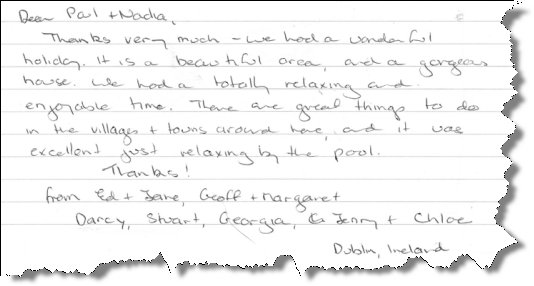 Dear Paul + Nadia,
Thanks very much - we had a wonderful
holiday. It is a beautiful area, and a gorgeous
house. We had a totally relaxing and
enjoyable time. There are great things to do
in the villages + towns around here, and it was
excellent just relaxing by the pool.
Thanks!
from Ed + Jane, Geoff + Margaret
Darcy, Stuart, Georgia, Jenny + Chloe
Dublin, Ireland